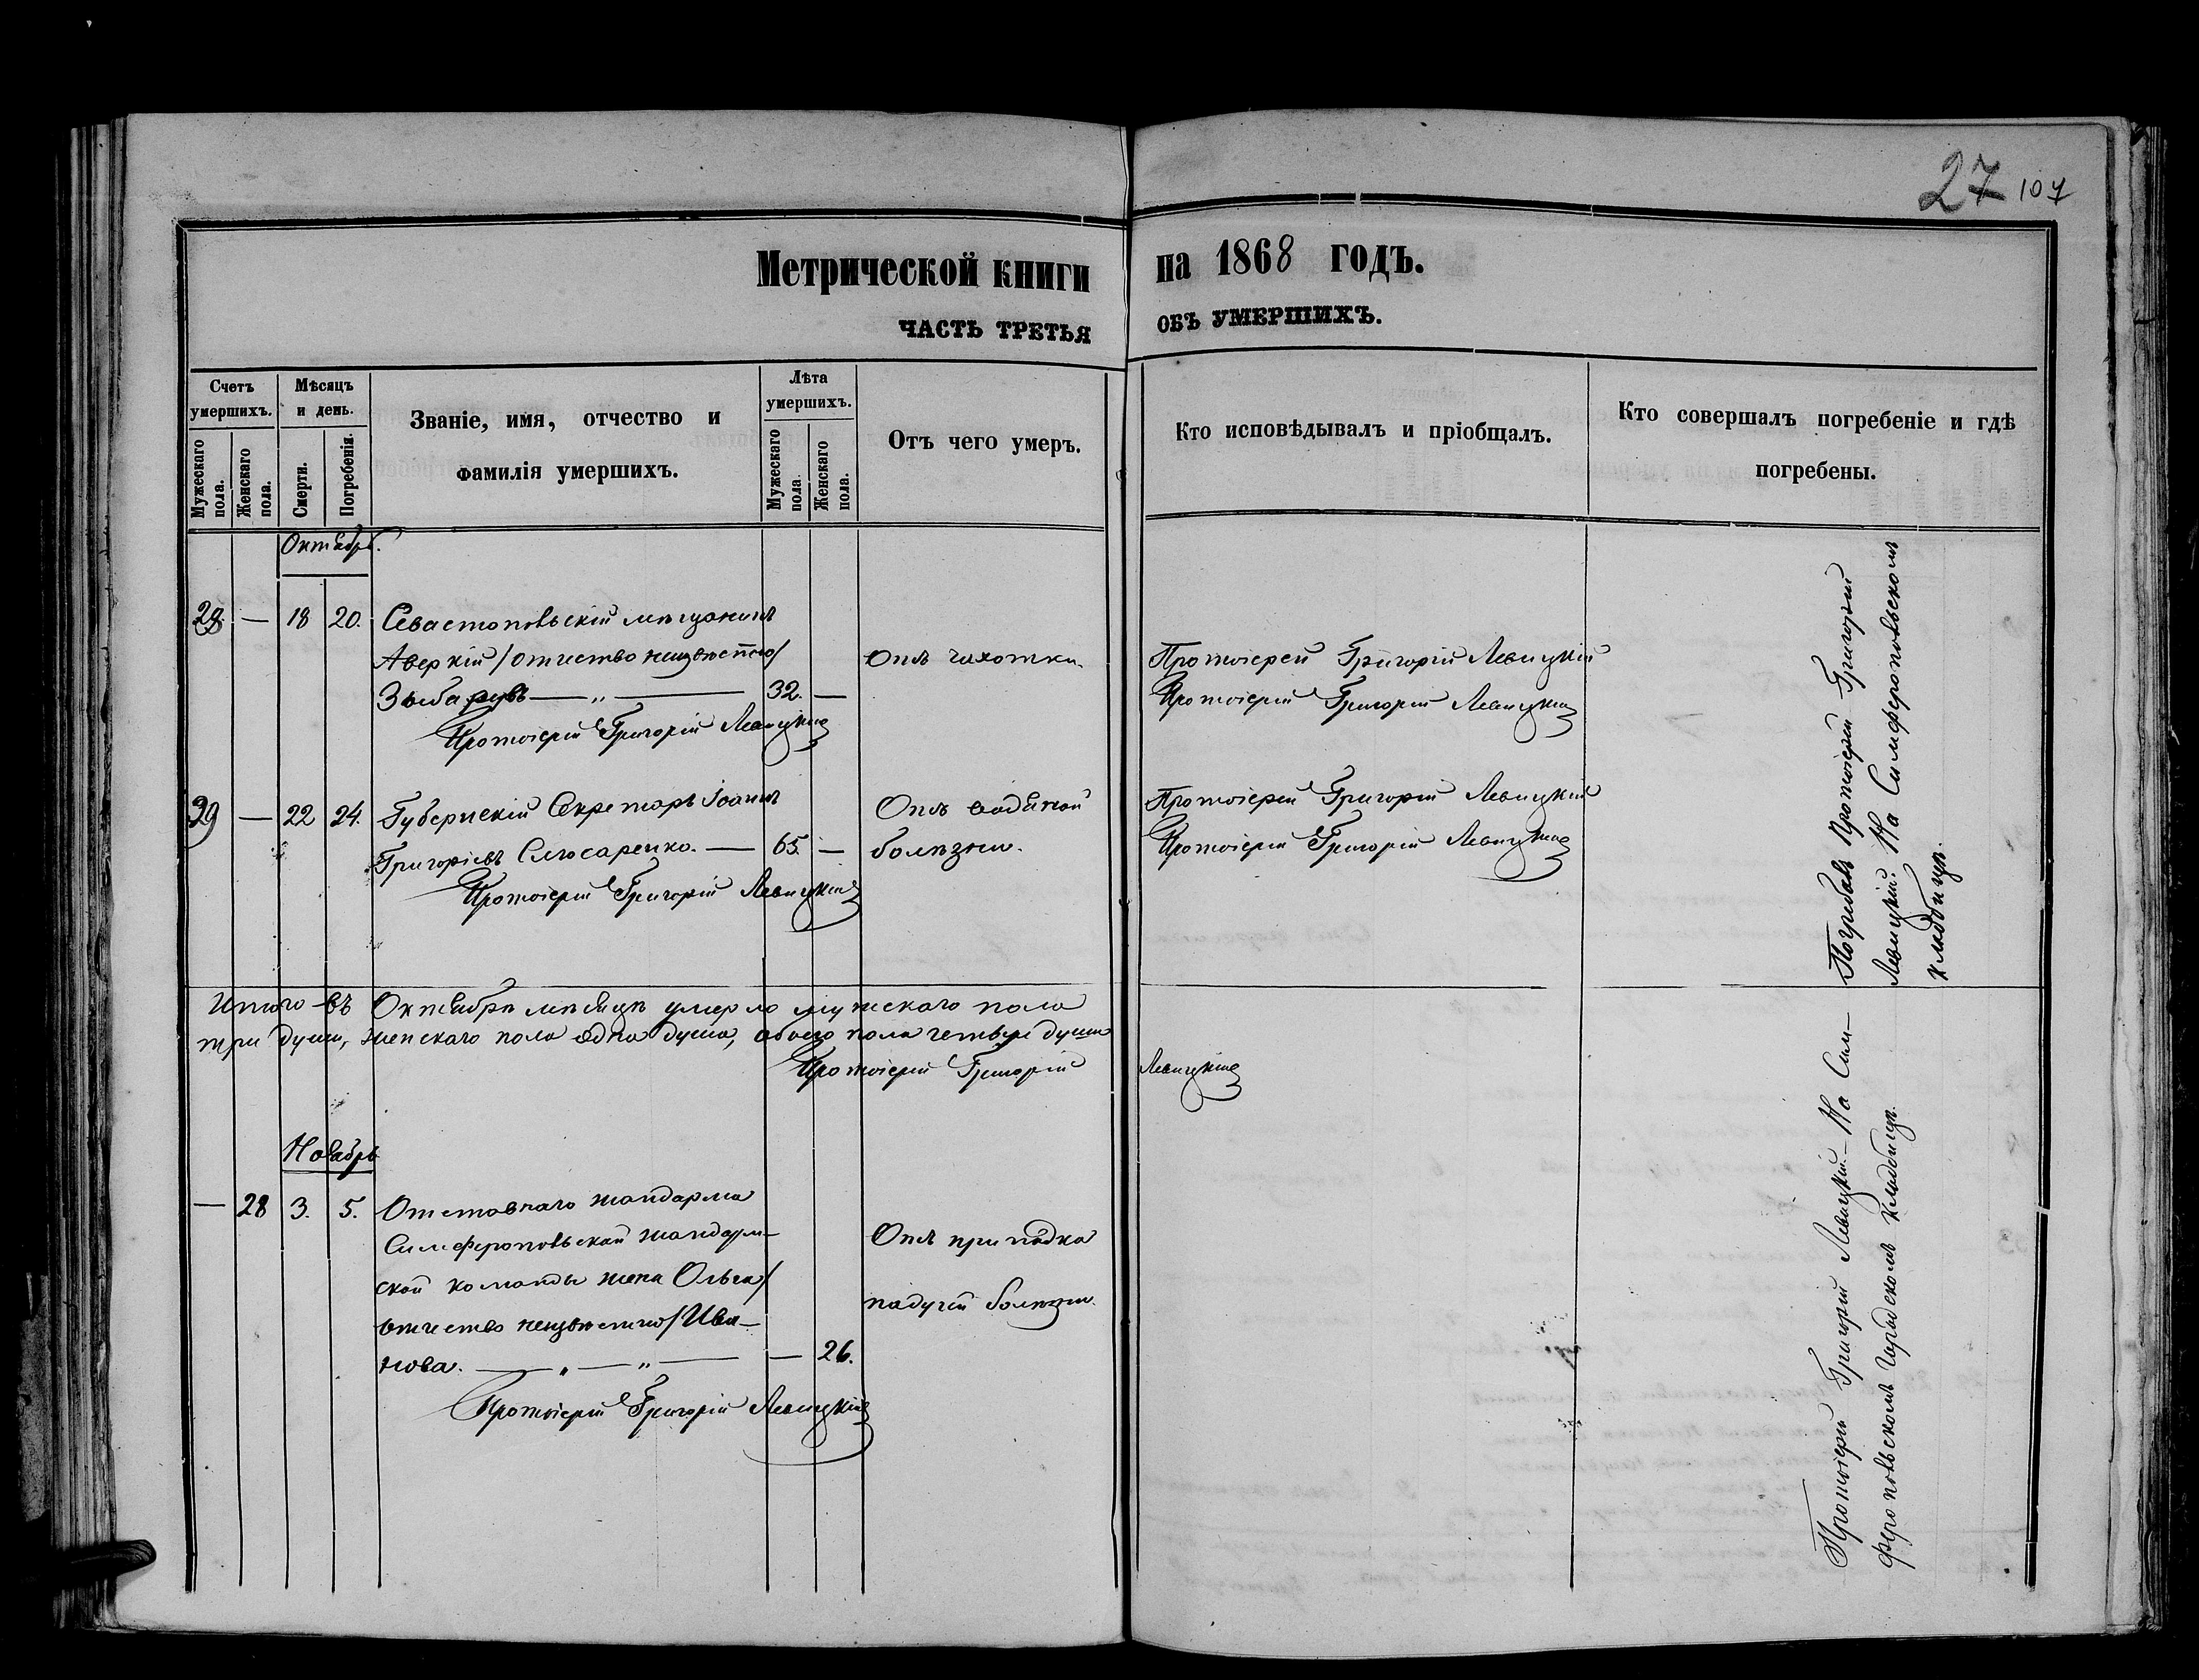 27 107
Метрической книги на 1868 годъ.
ЧАСТЬ ТРЕТЬЯ ОБЪ УМЕРШИХЪ.
Счетъ умершихъ.
Мужескаго пола.
Женскаго пола.
Мѣсяцъ и день.
Смерти.
Погребенія.
Званіе, имя, отчество и
фамилія умершихъ.
Лѣта умершихъ.
Мужескаго пола.
Женскаго пола.
Отъ чего умеръ.
Кто исповѣдывалъ и пріобщалъ.
Кто совершалъ погребеніе и гдѣ
погребены.
Октябрь.
— 18 20. Севастопольскій мѣщанинъ
Аверкій /отчество неизвѣстно/ Отъ чахотки. Протоіерей Григорій Левицкій
32. — Протоіерей Григорій Левицкій
Протоіерей Григорій Левицкій
— 22 24. Губернскій Секретарь Іоаннъ Отъ водяной Протоіерей Григорій Левицкій
Григорьевъ Слюсаренко. — 65. — болѣзни. Протоіерей Григорій Левицкій
Протоіерей Григорій Левицкій
Погребалъ Протоіерей Григорій
Левицкій. На Симферопольскомъ
кладбищѣ.
Итого въ Октябрѣ мѣсяцѣ умерло мужскаго пола
три души, женскаго пола одна душа, обоего пола четыре души
Протоіерей Григорій Левицкій
Ноябрь
— 28 3. 5. Отставнаго жандарма
Симферопольской жандарм- Отъ припадка
ской команды жена Ольга/ падучей болѣзни.
отчество неизвѣстно/ Ива-
нова. — „ — „ — — 26.
Протоіерей Григорій Левицкій
Протоіерей Григорій Левицкій. — На Сим-
феропольскомъ городскомъ кладбищѣ.